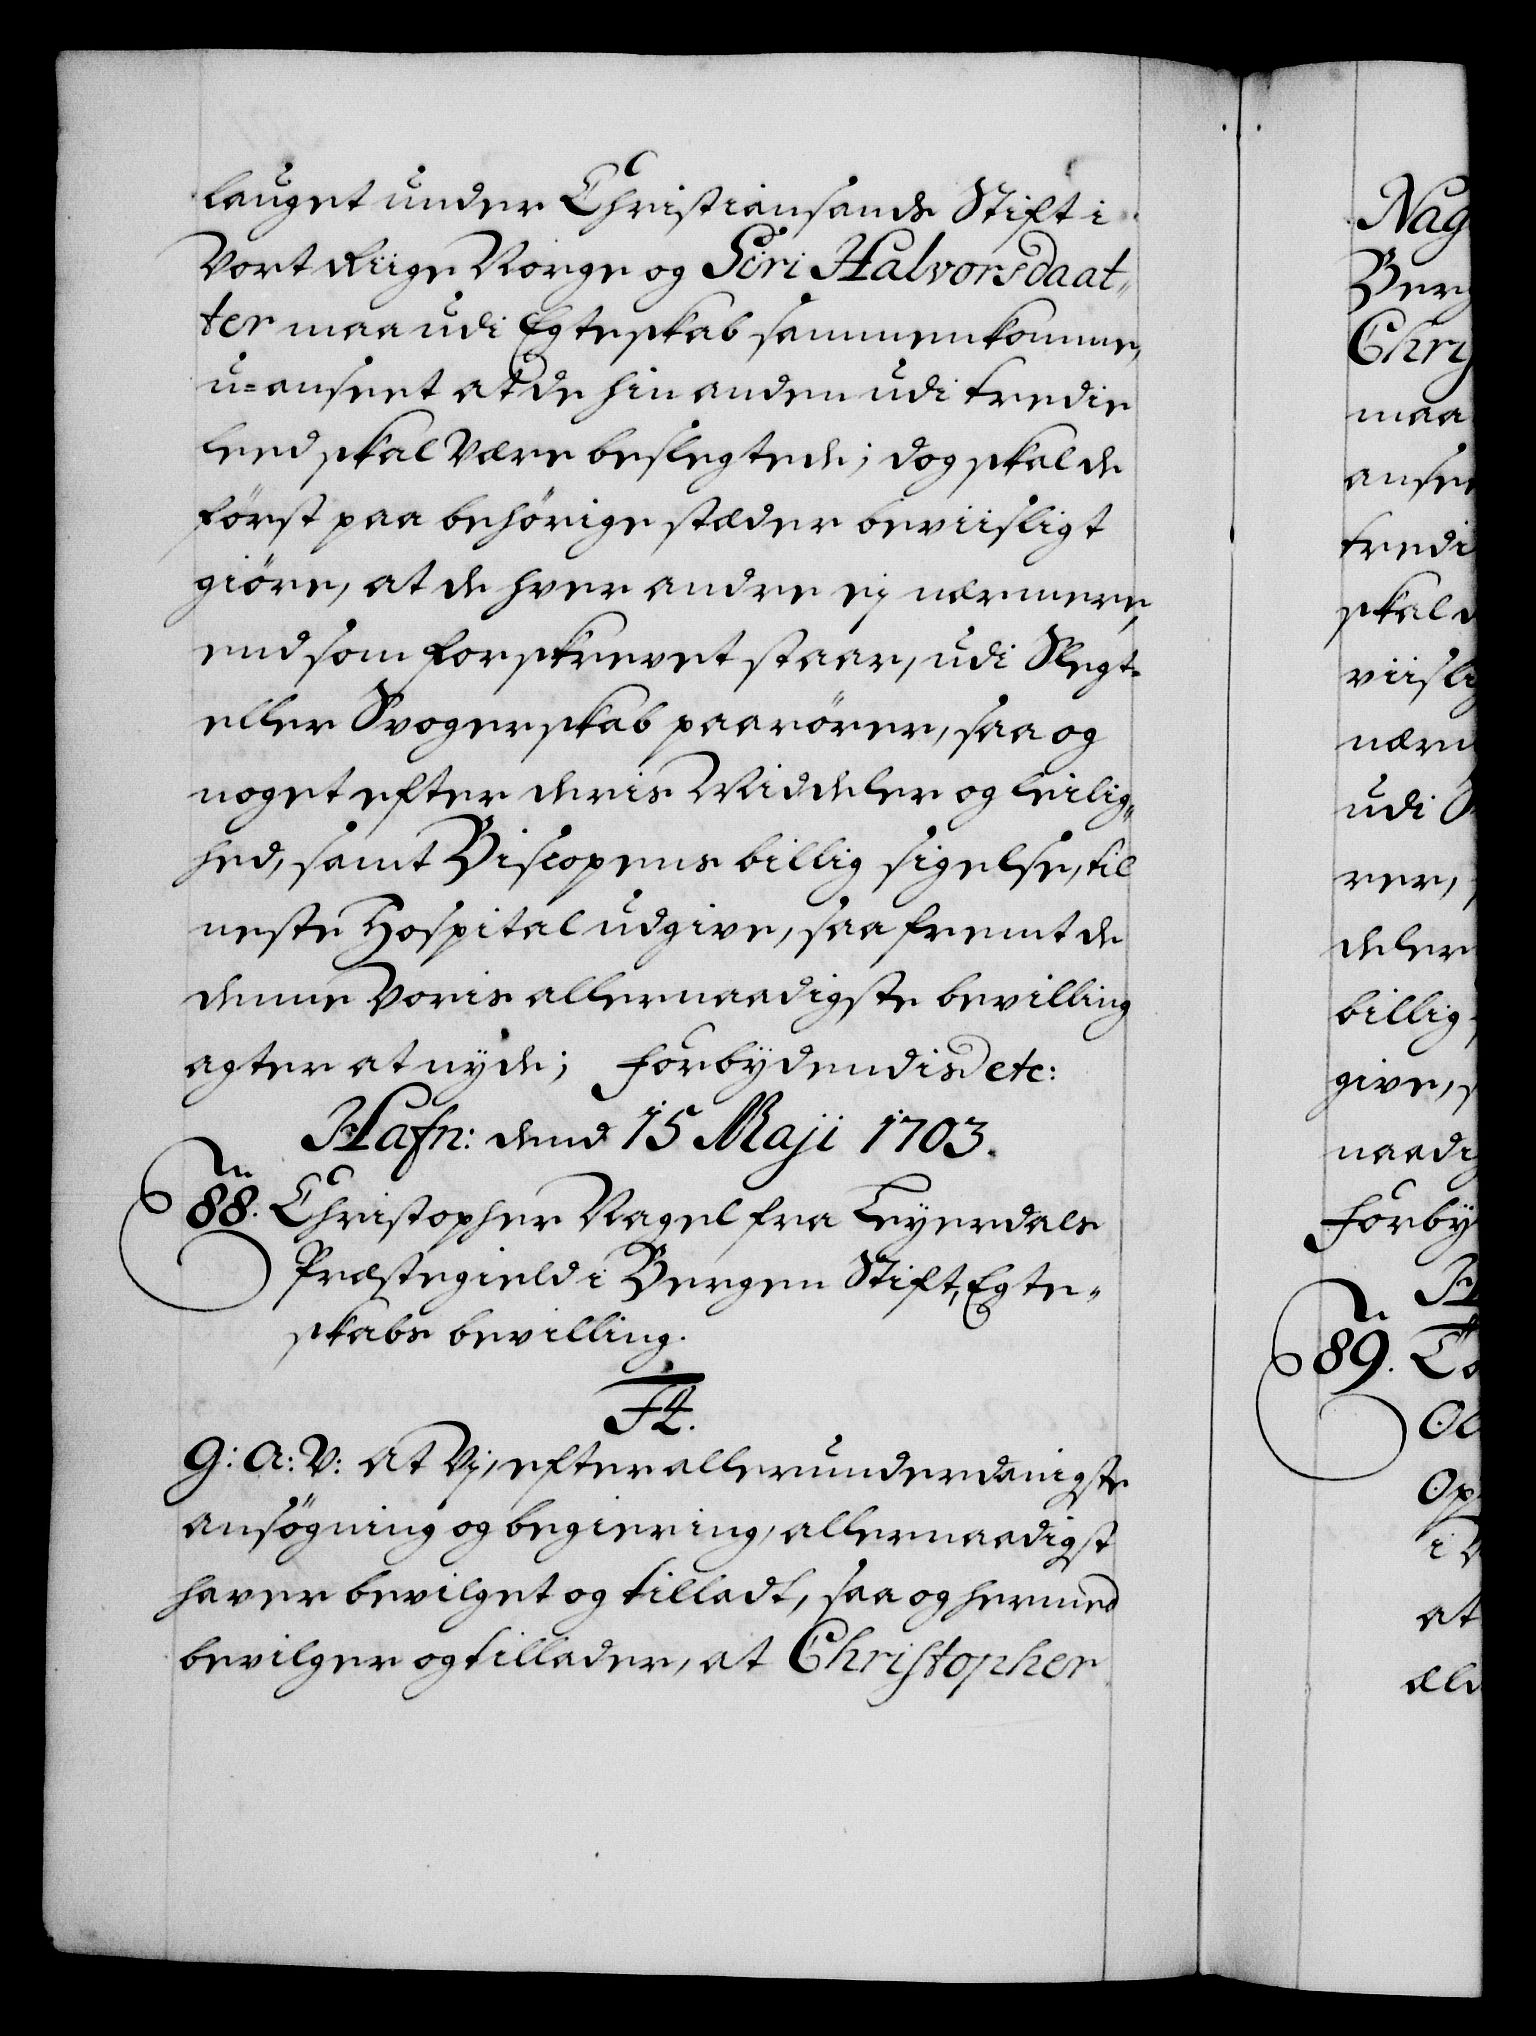 lauget under Christiansands Stift i
Vort Riige Norge og Siri Halvorsdaat„
ter maa udi Egteskab sammenkomme,
u=anseet at de hin anden udi tredie
leed skal være beslegtede; dog skal de
först paa behörige stæder beviisligt
giöre, at de hver andre ej nærmere,
end som forskrevet staar, udi Slegt-
eller Svogerskab paarörer, saa og
noget efter deris Middeler og leilig„
hed, samt Biscopens billig sigelse, til
neste Hospital udgive, saa fremt de
denne Voris allernaadigste bevilling
agter at nyde; Forbydendis etc:
Hafn: dend 15 Maji 1703.
88. Christopher Nagel fra Leyerdals
Præstegield i Bergen Stift, Egte„
skabs bevilling.
F4.
G: A: V: At Vj, efter allerunderdanigste
ansögning og begiering, allernaadigst
haver bevilget og tilladt, saa og hermed
bevilger og tillader, at Christopher
Nag
Berg
Chris
maa
anseet
tredi
skal d
viislig
nærm
udi S
rer,
deler
billig
give, s
naadig
Forby
H
89. To
Ol
Op
i V
at
æld